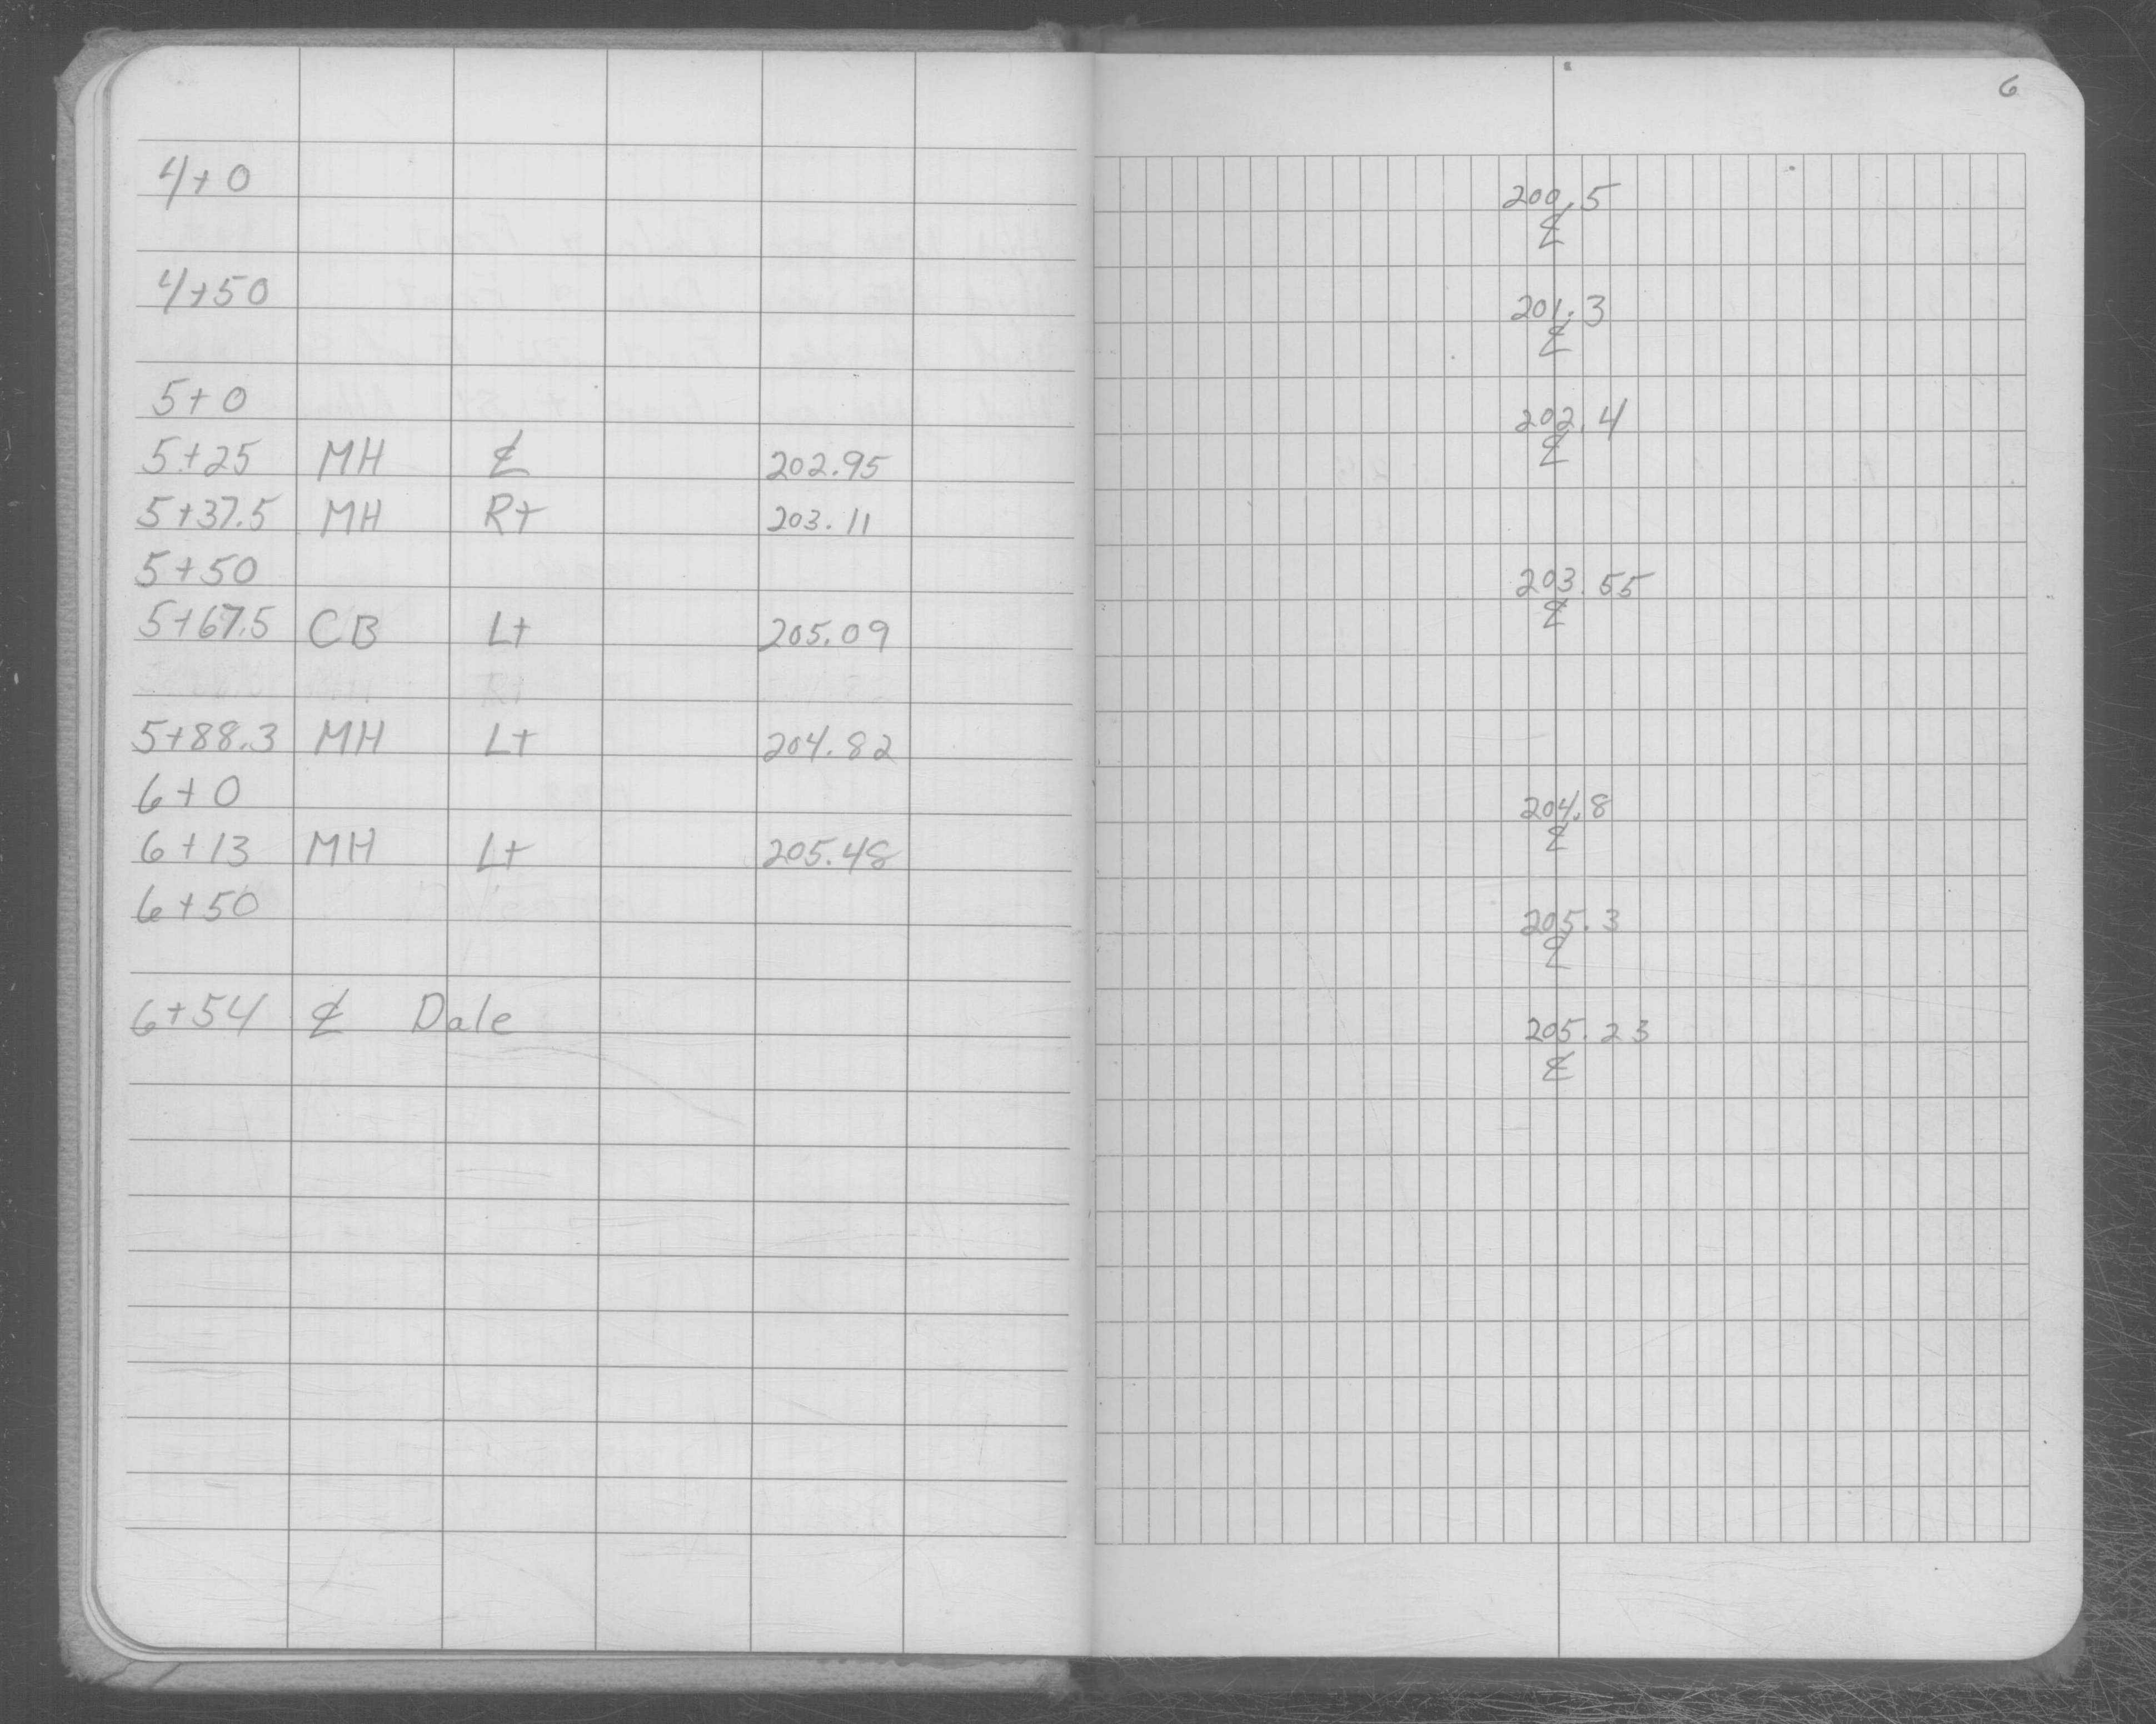 6
4+0 200.5
℄
4+50 201.3
℄
5+0 202.4
℄
5+25 MH ℄ 202.95
5+37.5 MH Rt 203.11
5+50 203.55
℄
5+67.5 CB Lt 205.09
5+88.3 MH Lt 204.82
6+0 204.8
℄
6+13 MH Lt 205.48
6+50 205.3
℄
6+54 ℄ Dale 205.23
℄